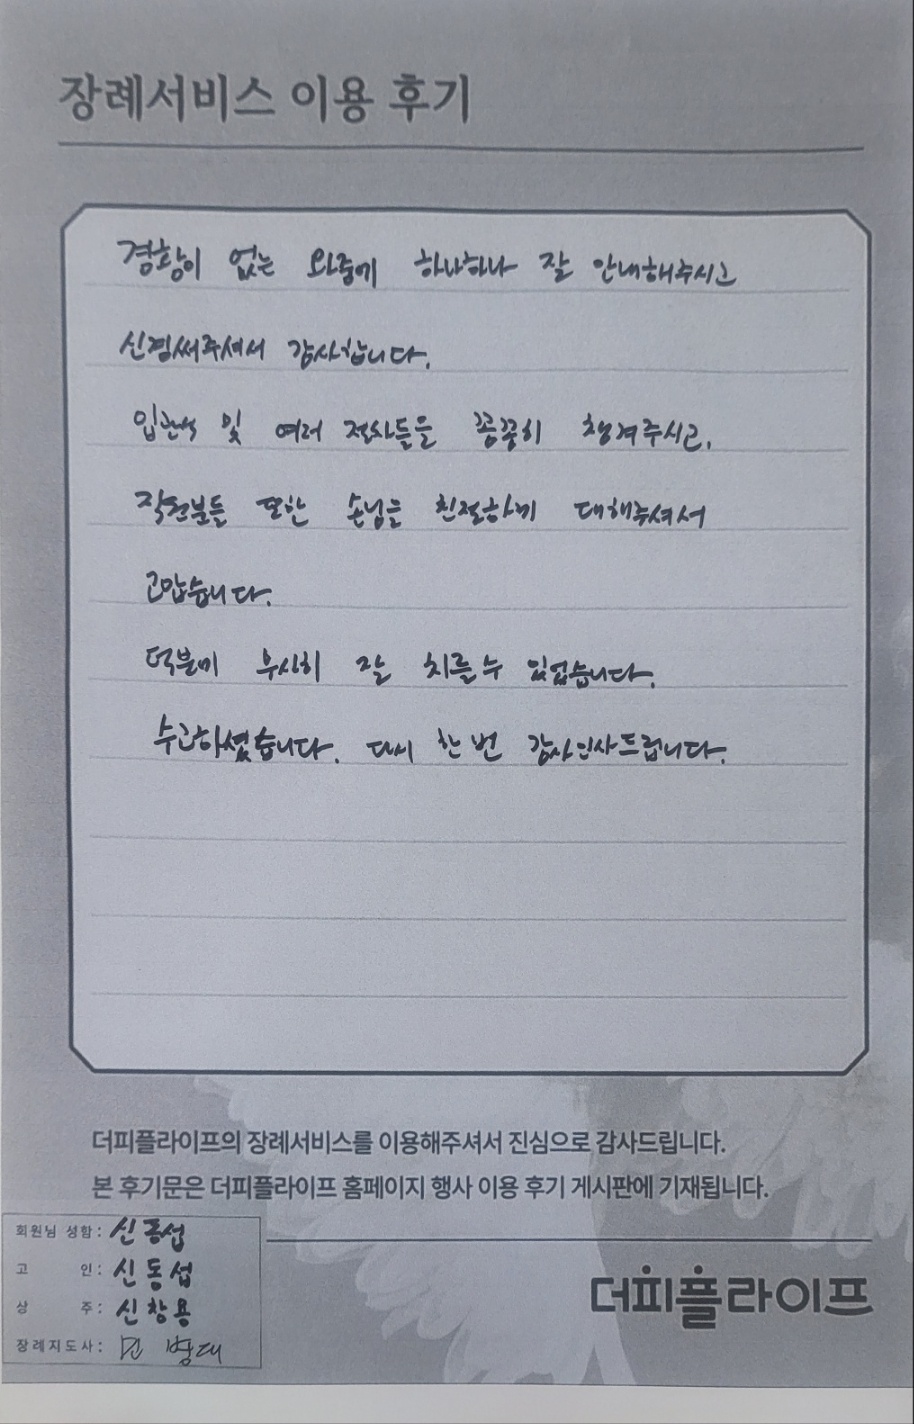 장례서비스 이용 후기
경황이 없는 와중에 하나하나 잘 안내해주시고
신경써주셔서 감사합니다.
입관식 및 여러 절차들을 꼼꼼히 챙겨주시고,
직원분들 또한 손님을 친절하게 대해주셔서
고맙습니다.
덕분에 무사히 잘 치를수 있었습니다.
수고하셨습니다. 다시 한번 감사인사드립니다.
더피플라이프의 장례서비스를 이용해주셔서 진심으로 감사드립니다.
본 후기문은 더피플라이프 홈페이지 행사 이용 후기 게시판에 기재됩니다.
회원님 성함: 신동섭
고 인: 신동섭
상 주: 신창용
장례지도사: 병대
더피플라이프